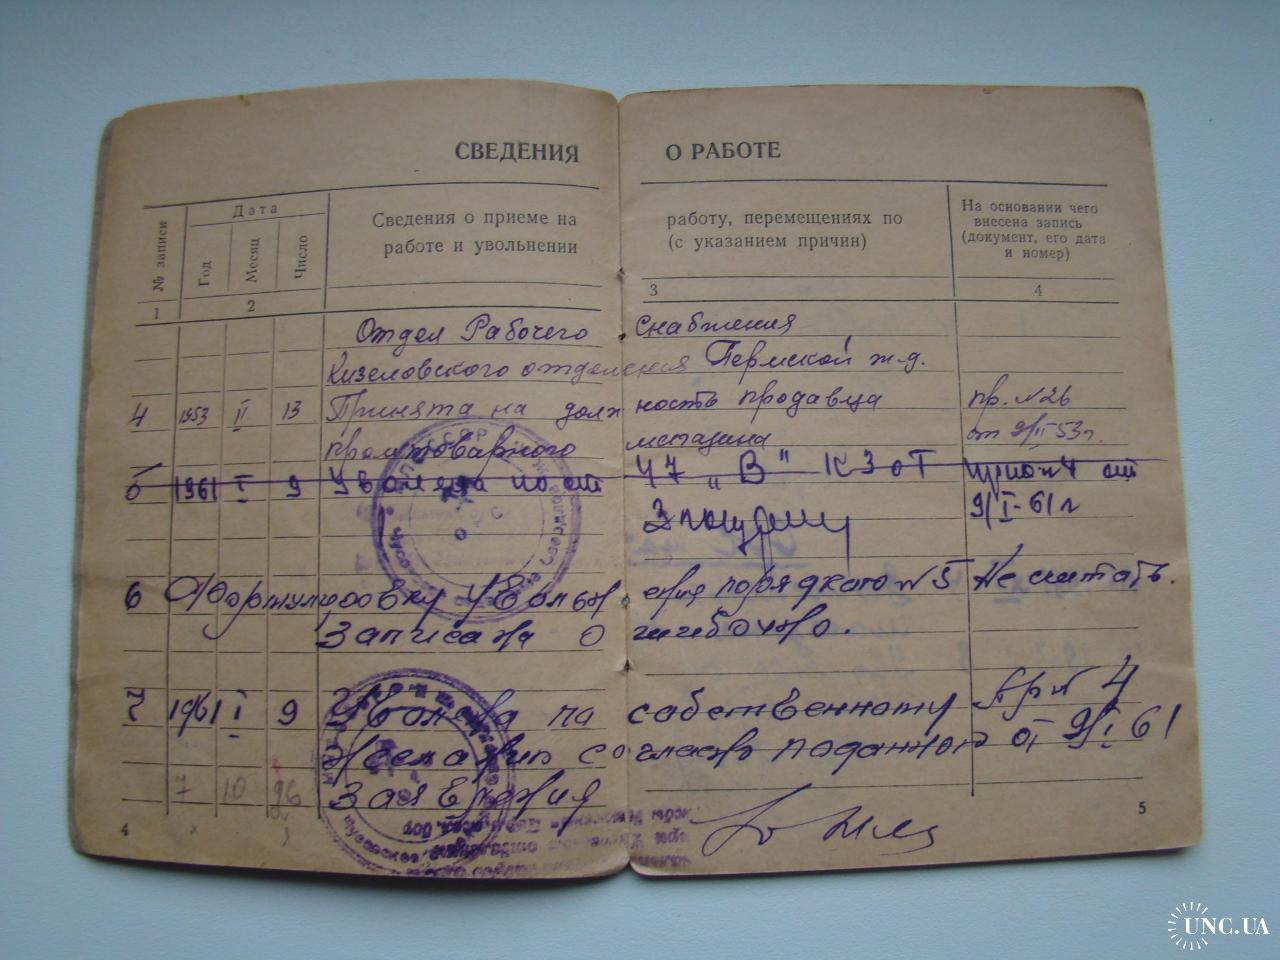 СВЕДЕНИЯ О РАБОТЕ
№ записи
Дата
Год
Месяц
Число
Сведения о приеме на работу, перемещениях по
работе и увольнении (с указанием причин)
На основании чего
внесена запись
(документ, его дата
и номер)
1 2 3 4
Отдел Рабочего Снабжения
Кизеловского отделения Пермской ж-д.
4 1953 II 13 Принята на должность продавца пр. №26
промтоварного магазина от 9/II 53г.
5 1961 I 9 Уволена по ст 47 „В" КЗоТ
9/I-61г
6 Формулировку увольнения порядкого №5 Не считать.
Записана ошибочно.
7 1961 I 9 Уволена па собственному Пр № 4
желанию согласно поданного от 9/I 61
7 10 26 заявления
4
5
UNC.UA